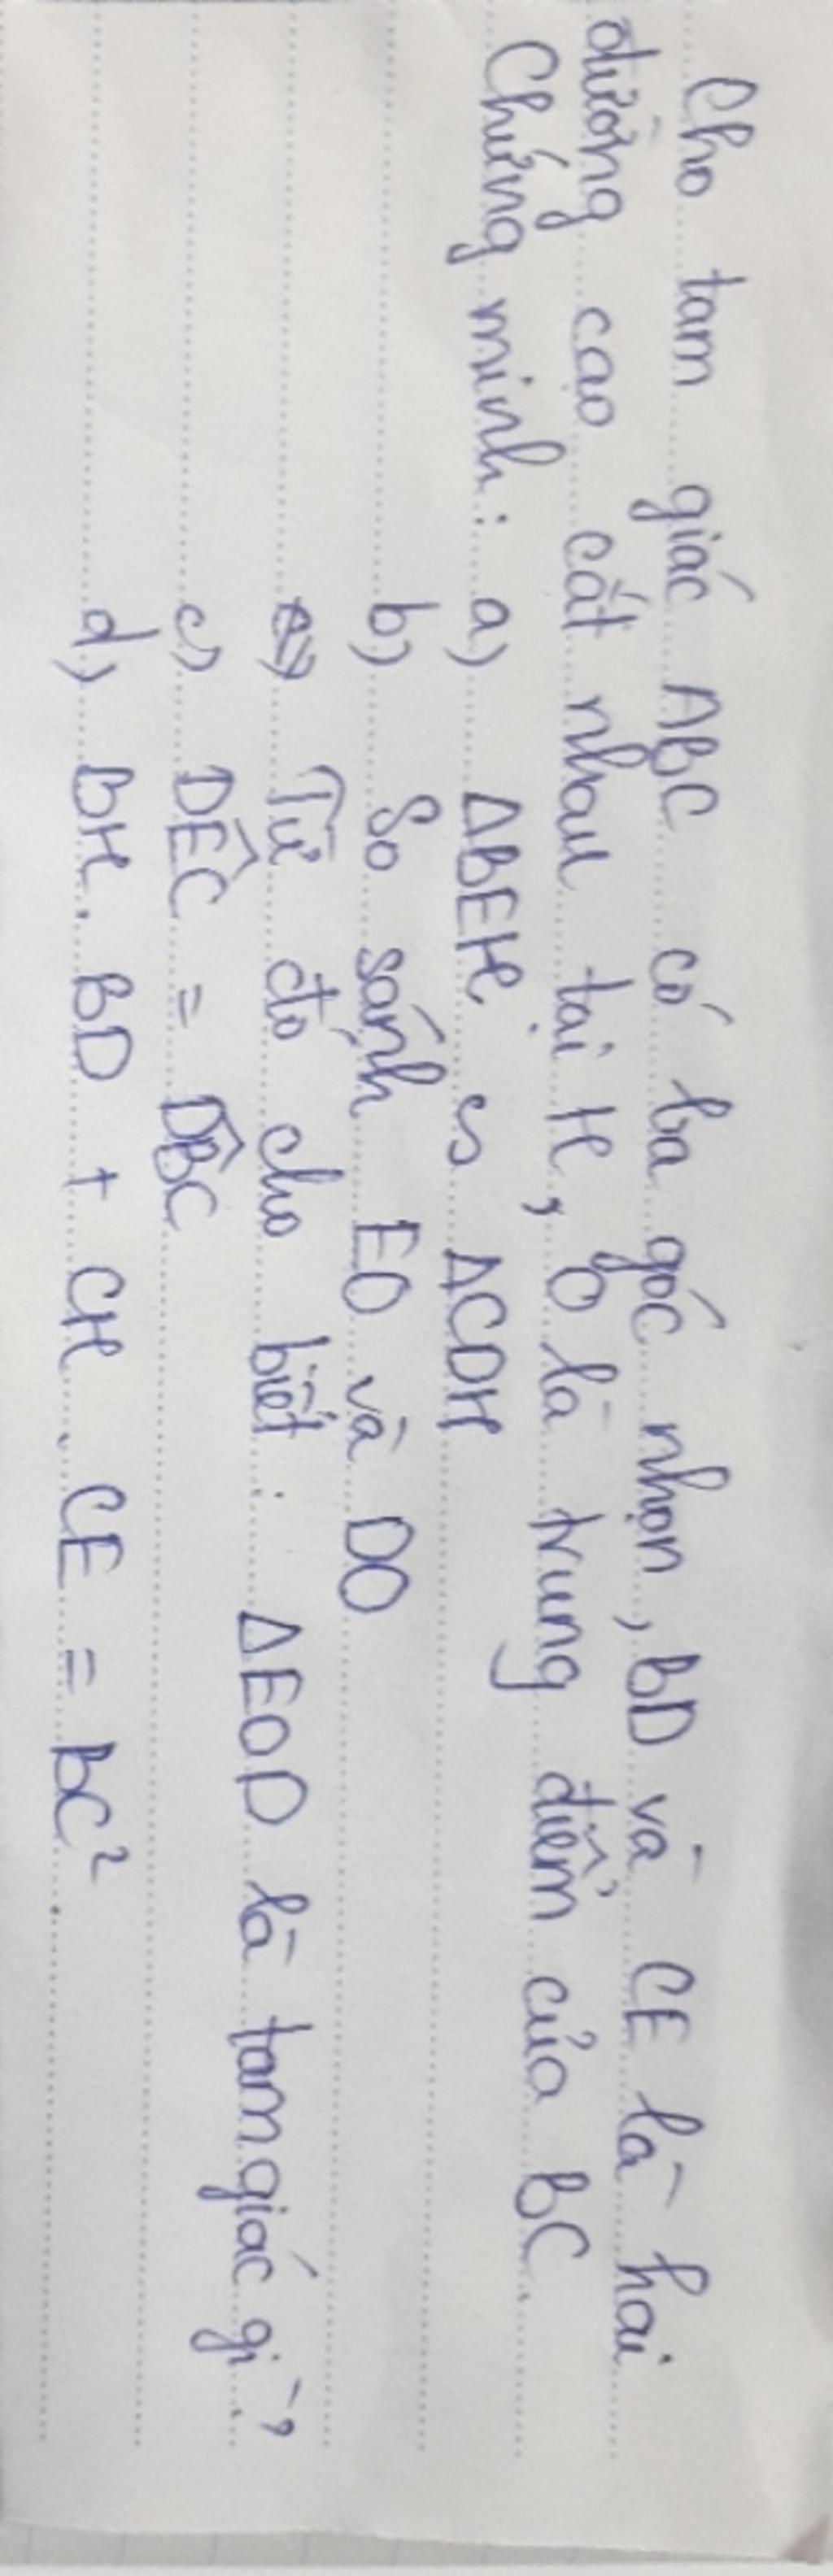 Cho tam giác ABC có ba góc nhọn, BD và CE là hai
đường cao cắt nhau tại H, O là trung điểm của BC.
Chứng minh: a) ΔBEH ∽ ΔCDH
b) So sánh EO và DO
Từ đó cho biết: ΔEOD là tam giác gì?
c) DÊC = DB̂C
d) BH. BD + CH. CE = BC².